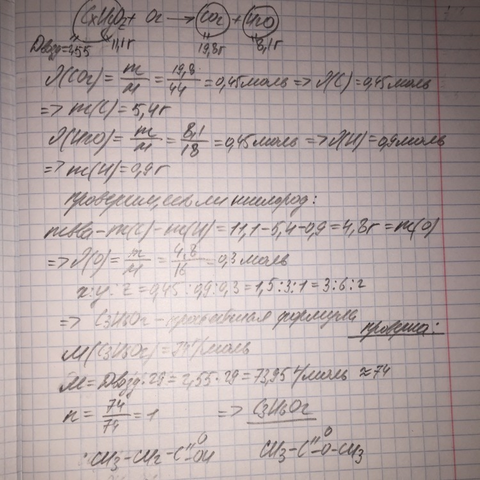 CxHyOz + O2 → CO2 + H2O
Dвозд=2,55 11,1г 19,8г 8,1г
λ(CO2) = m/M = 19,8/44 = 0,45моль => λ(C) = 0,45моль
=> m(C) = 5,4г
λ(H2O) = m/M = 8,1/18 = 0,45моль => λ(H) = 0,9моль
=> m(H) = 0,9г
проверим, есть ли кислород:
mв-ва - m(C) - m(H) = 11,1-5,4-0,9 = 4,8г = m(O)
=> λ(O) = m/M = 4,8/16 = 0,3моль
x:y:z = 0,45:0,9:0,3 = 1,5:3:1 = 3:6:2
=> C3H6O2 - простейшая формула
проверка:
M(C3H6O2) = 74г/моль
M = Dвозд·29 = 2,55·29 = 73,95г/моль ≈ 74
n = 74/74 = 1 => C3H6O2
O O
CH3-CH2-C-OH CH3-C-O-CH3